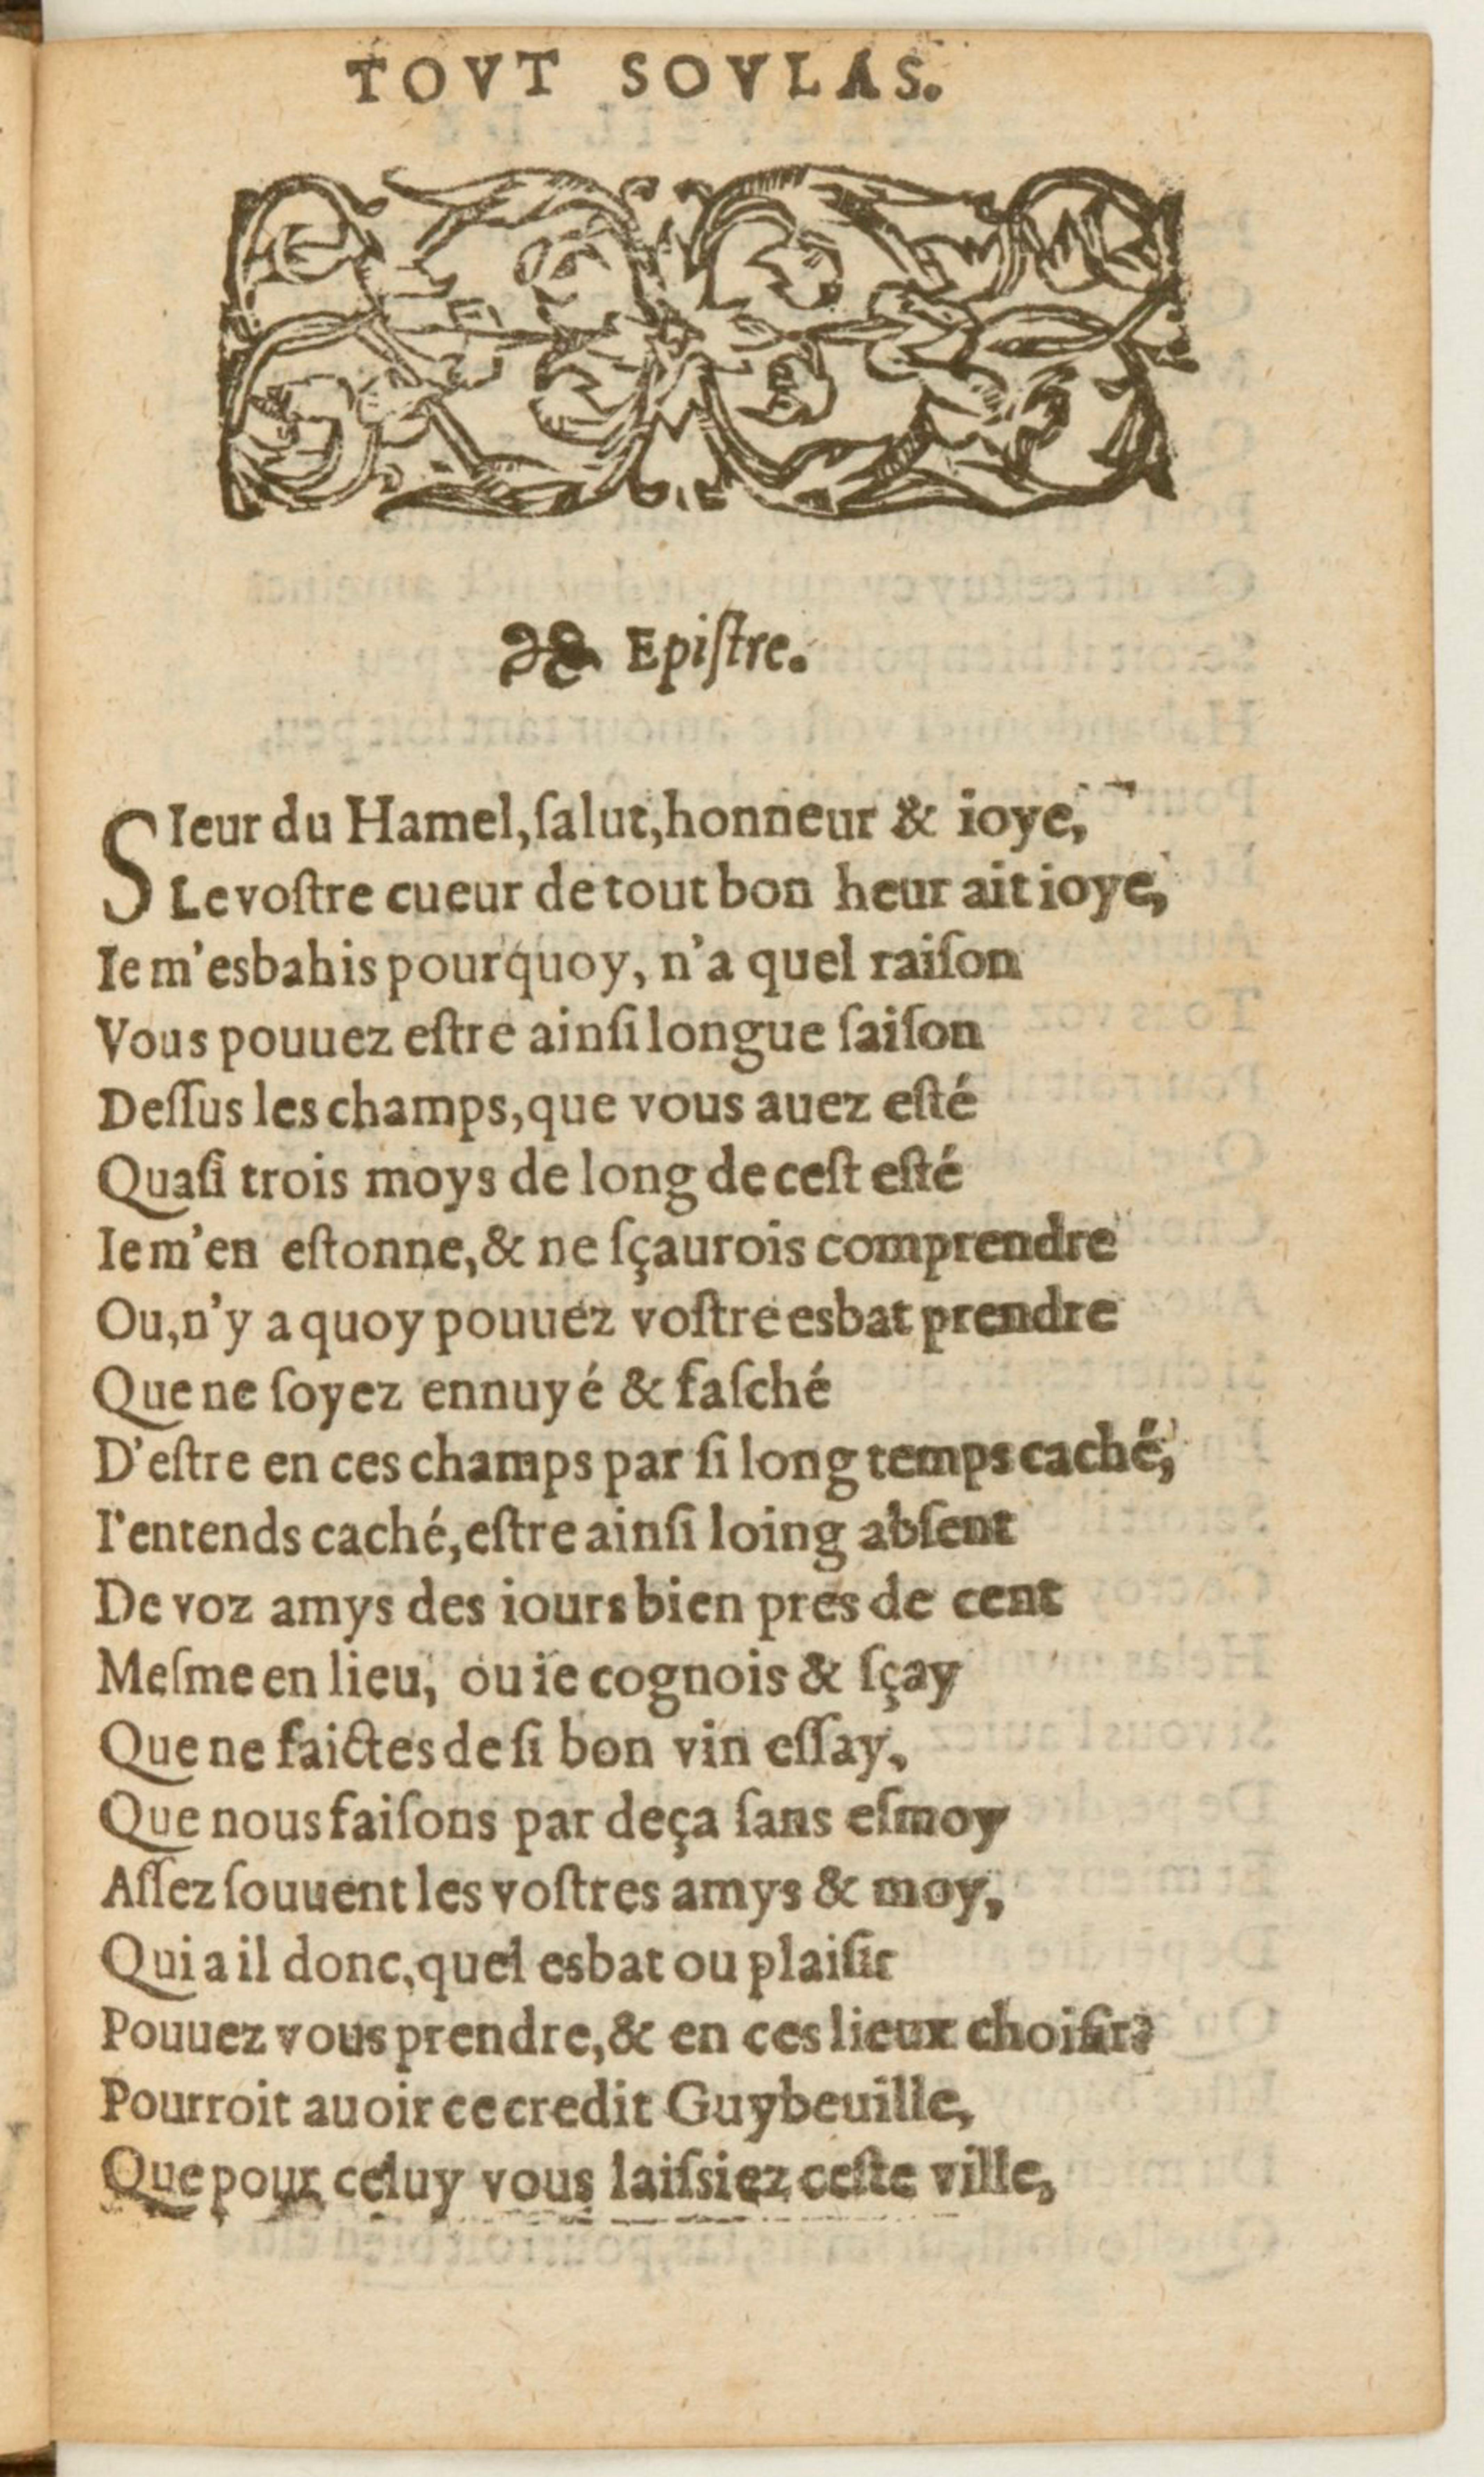 TOVT SOVLAS.
Epiſtre.
SIeur du Hamel, ſalut, honneur & ioye,
Le voſtre cueur de tout bon heur ait ioye,
Ie m'esbahis pourquoy, n'a quel raiſon
Vous pouuez eſtre ainſi longue ſaiſon
Deſſus les champs, que vous auez eſté
Quaſi trois moys de long de ceſt eſté
Ie m'en eſtonne, & ne ſçaurois comprendre
Ou, n'y a quoy pouuez voſtre esbat prendre
Que ne ſoyez ennuyé & faſché
D'eſtre en ces champs par ſi long temps caché,
I'entends caché, eſtre ainſi loing abſent
De voz amys des iours bien pres de cent
Meſme en lieu, ou ie cognois & ſçay
Que ne faictes de ſi bon vin eſſay,
Que nous faiſons par deça ſans eſmoy
Aſſez ſouuent les voſtres amys & moy,
Qui a il donc, quel esbat ou plaiſir
Pouuez vous prendre, & en ces lieux choiſir?
Pourroit auoir ce credit Guybeuille,
Que pour celuy vous laiſsiez ceſte ville,